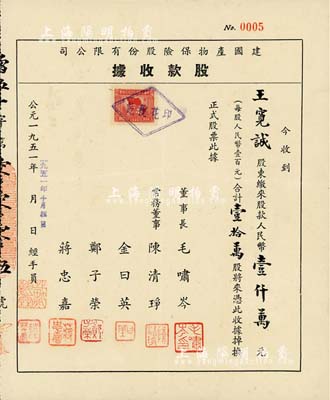 No. 0005
司公限有份股險保物產國建
據收款股
今收到
王寬誠 股東繳來股款人民幣 壹仟萬 元
(每股人民幣壹百元)合計 壹拾萬 股將來憑此收據掉換
正式股票此據
董事長 毛嘯岑
常務董事 陳清華
金曰英
鄭子榮
蔣忠嘉
公元一九五一年 月 日 經手員
印花稅訖
上海陽明拍賣